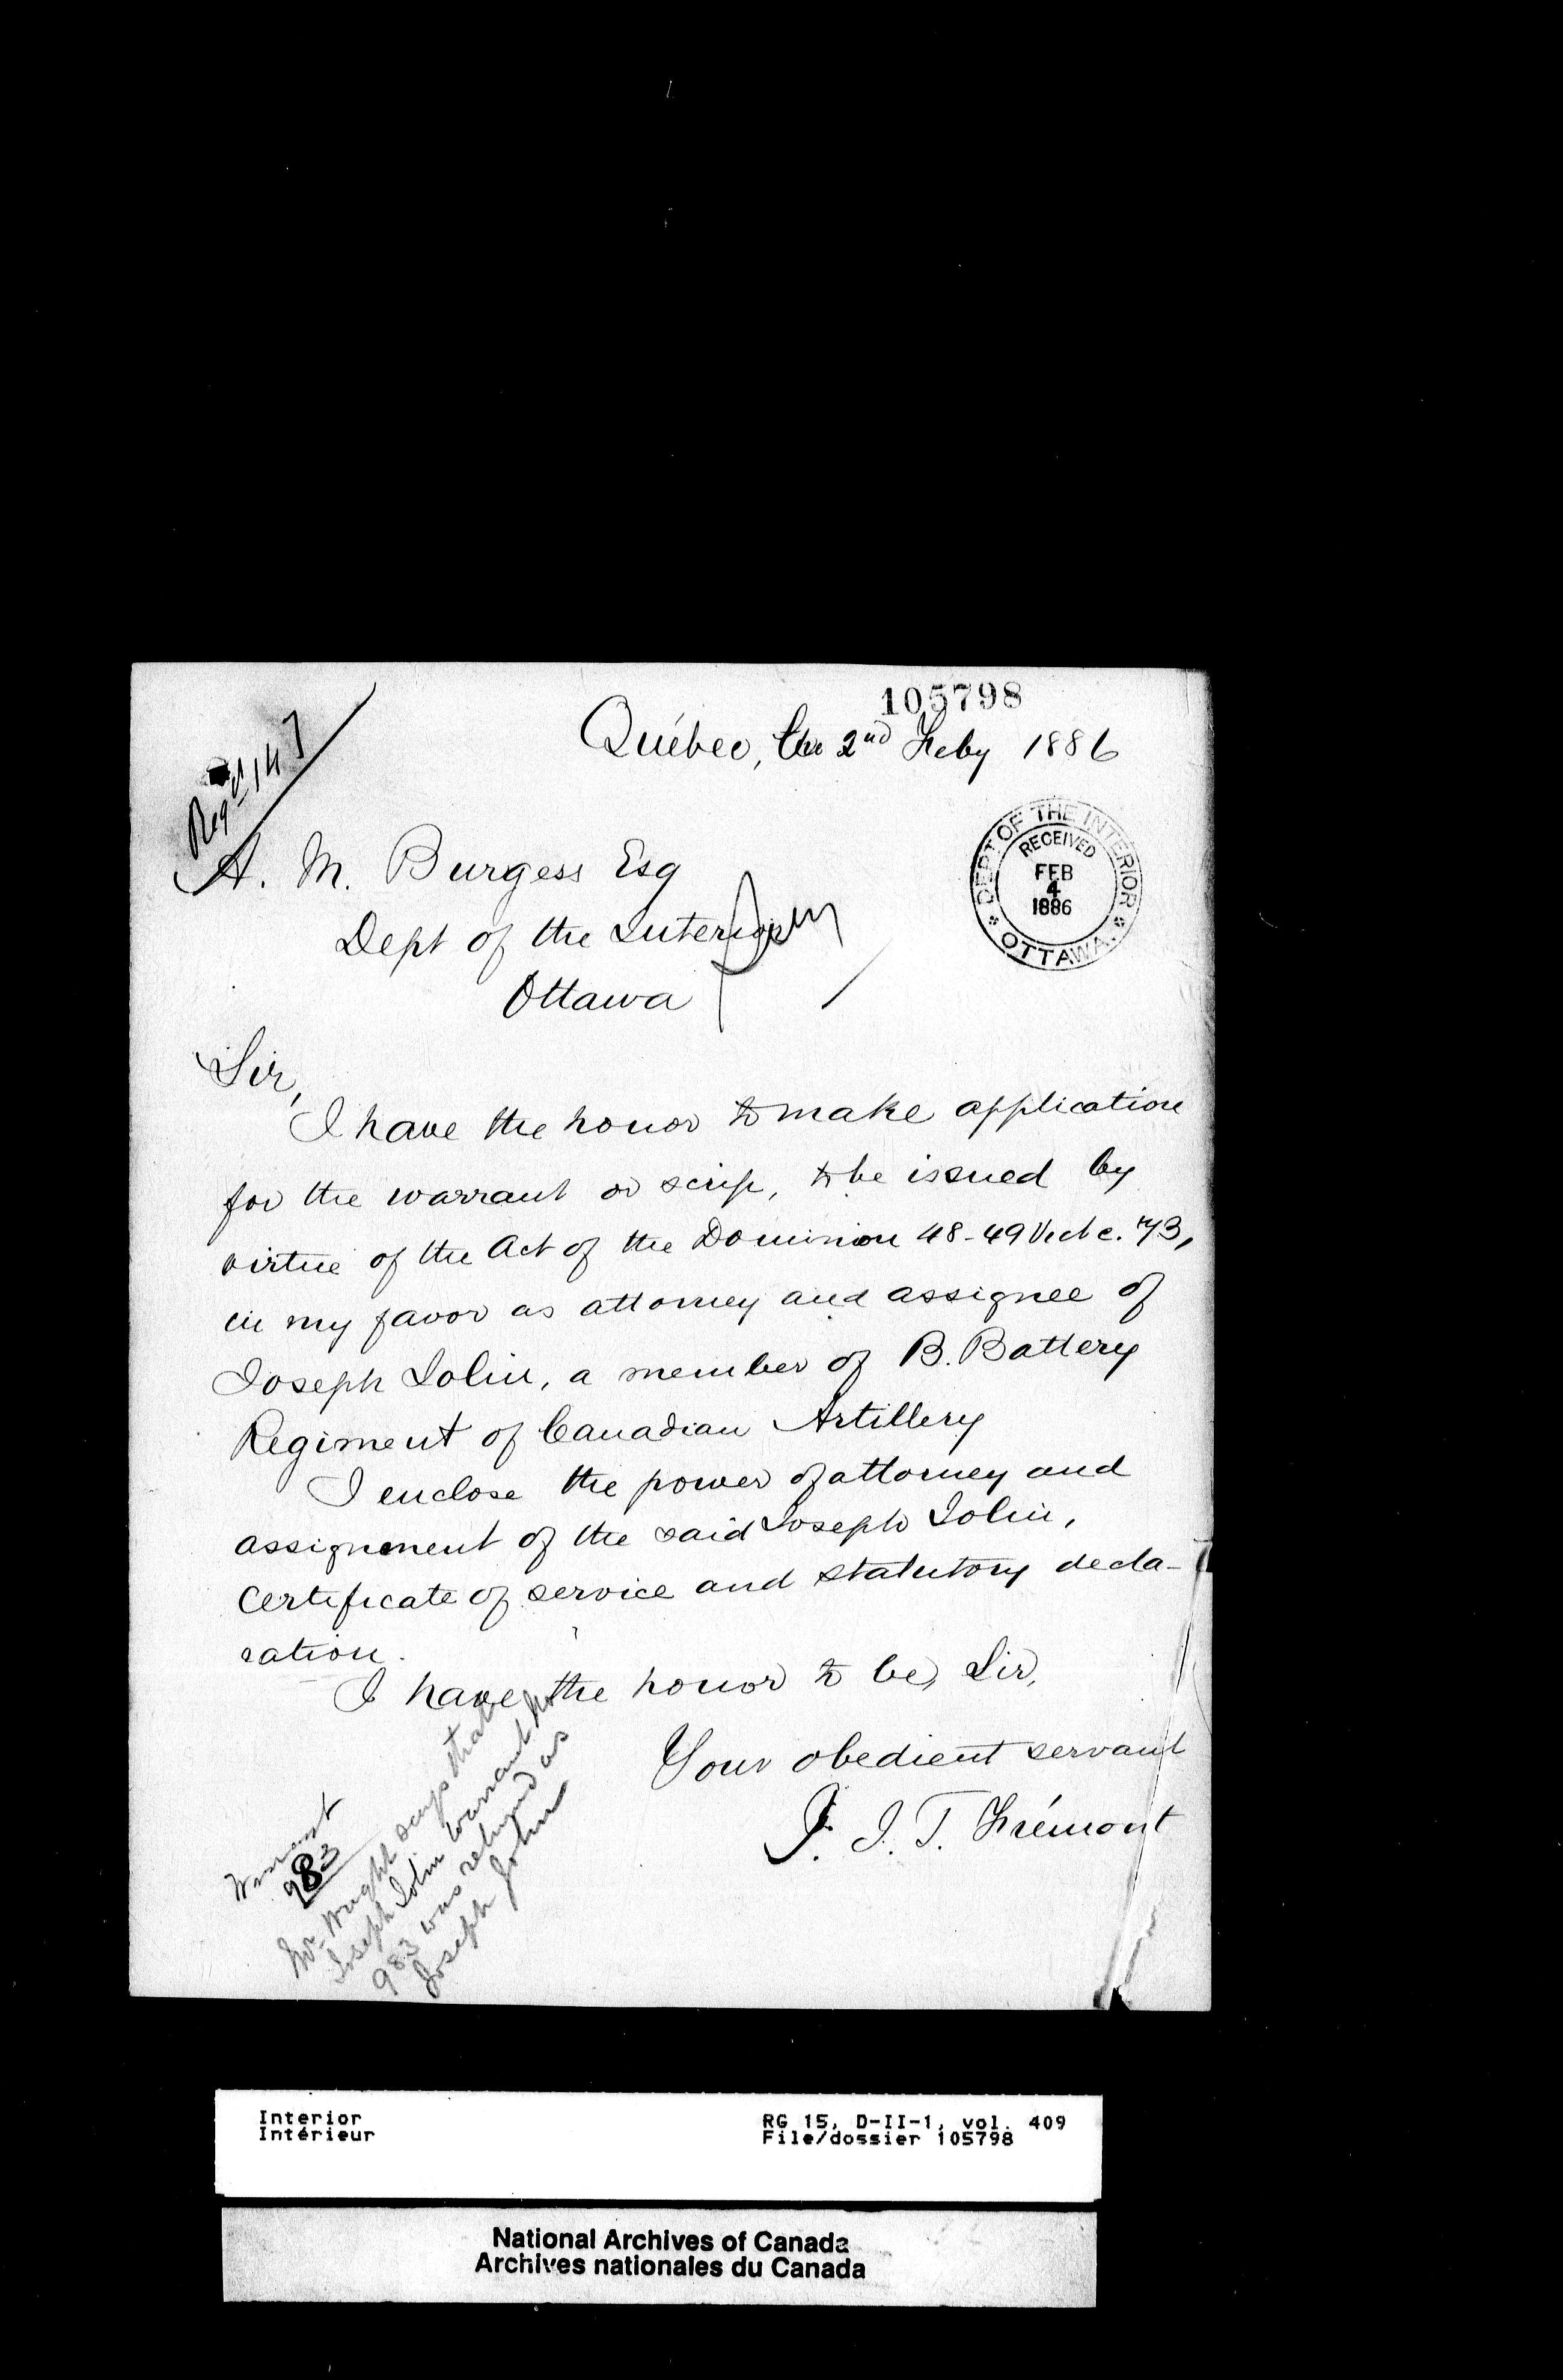 105798
Québec, the 2nd Feby 1886
Regd 147
A. M. Burgess Esq
Dept of the Interior
Ottawa
DEPT OF THE INTERIOR
RECEIVED
FEB
4
1886
OTTAWA.
Sir,
I have the honor to make application
for the warrant or scrip, to be issued by
virtue of the Act of the Dominion 48-49 Vict c. 73,
in my favor as attorney and assignee of
Joseph Jolin, a member of B. Battery
Regiment of Canadian Artillery
I enclose the power of attorney and
assignment of the said Joseph Jolin,
certificate of service and statutory decla-
ration.
I have the honor to be, Sir,
Your obedient servant
J. J. T. Frémont
Warrant
983
Mr. Wright says that
Joseph Jolin warrant No
983 was returned as
Joseph John
Interior
Intérieur
RG 15, D-II-1, vol. 409
File/dossier 105798
National Archives of Canada
Archives nationales du Canada